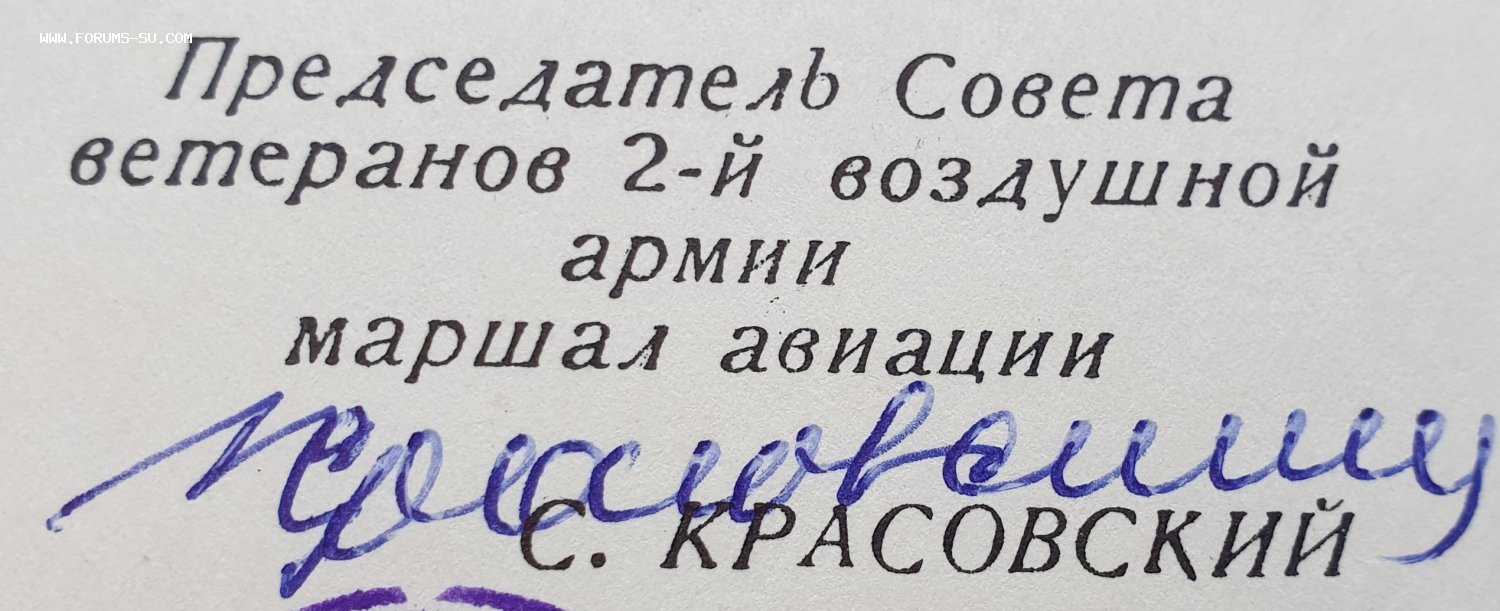 WWW.FORUMS-SU.COM
Председатель Совета
ветеранов 2-й воздушной
армии
маршал авиации
Красовский
С. КРАСОВСКИЙ